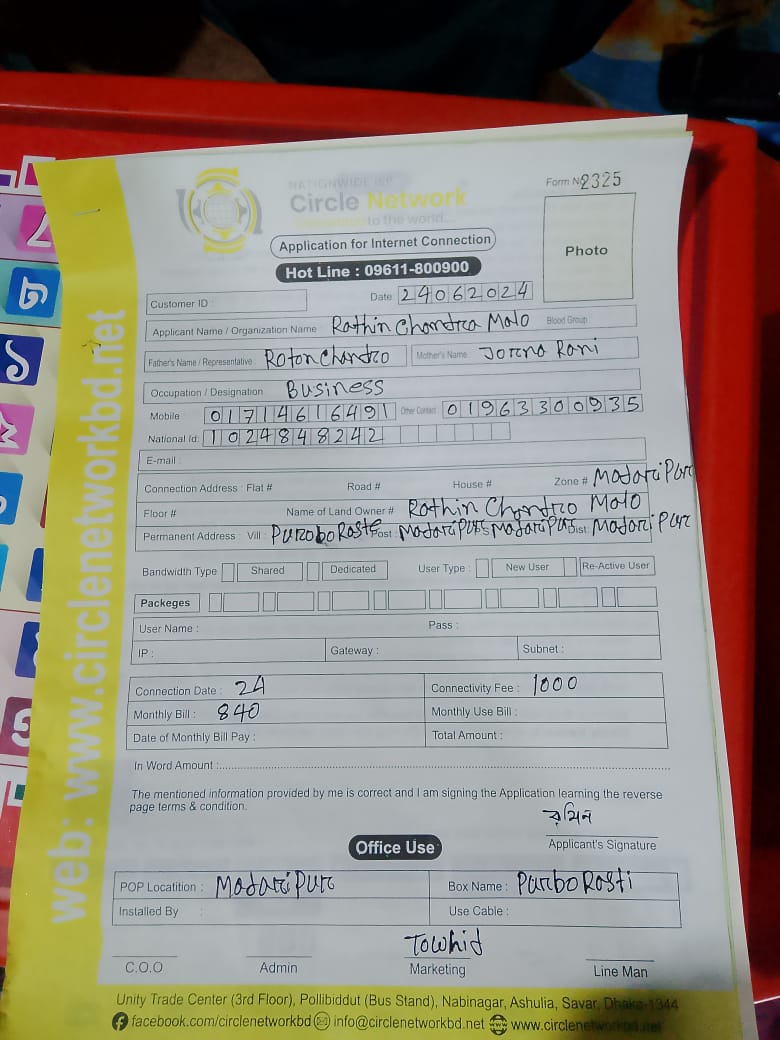 NATIONWIDE ISP
Circle Network
to the world...
Form No 2325
Application for Internet Connection
Photo
Hot Line : 09611-800900
Customer ID :
Date 24062024
Applicant Name / Organization Name Rathin Chandra Malo Blood Group:
Father's Name / Representative : Roton Chandro Mother's Name : Jorna Rani
Occupation / Designation Business
Mobile 01714616491 Other Contact 01963300935
National Id: 1024848242
E-mail :
Connection Address : Flat # Road # House # Zone # Madaripur
Floor # Name of Land Owner # Rathin Chandro Malo
Permanent Address : Vill : Purobo Raste Post : Madaripur Madaripur Dist Madaripur
Bandwidth Type Shared Dedicated User Type : New User Re-Active User
Packeges
User Name : Pass :
IP : Gateway : Subnet :
Connection Date : 24 Connectivity Fee : 1000
Monthly Bill : 840 Monthly Use Bill :
Date of Monthly Bill Pay : Total Amount :
In Word Amount :
The mentioned information provided by me is correct and I am signing the Application learning the reverse
page terms & condition.
রথিন
Applicant's Signature
Office Use
POP Locatition : Madaripur Box Name : Purbo Rasti
Installed By : Use Cable :
Towhid
C.O.O Admin Marketing Line Man
Unity Trade Center (3rd Floor), Pollibiddut (Bus Stand), Nabinagar, Ashulia, Savar, Dhaka-1344
facebook.com/circlenetworkbd info@circlenetworkbd.net www.circlenetworkbd.net
web: www.circlenetworkbd.net